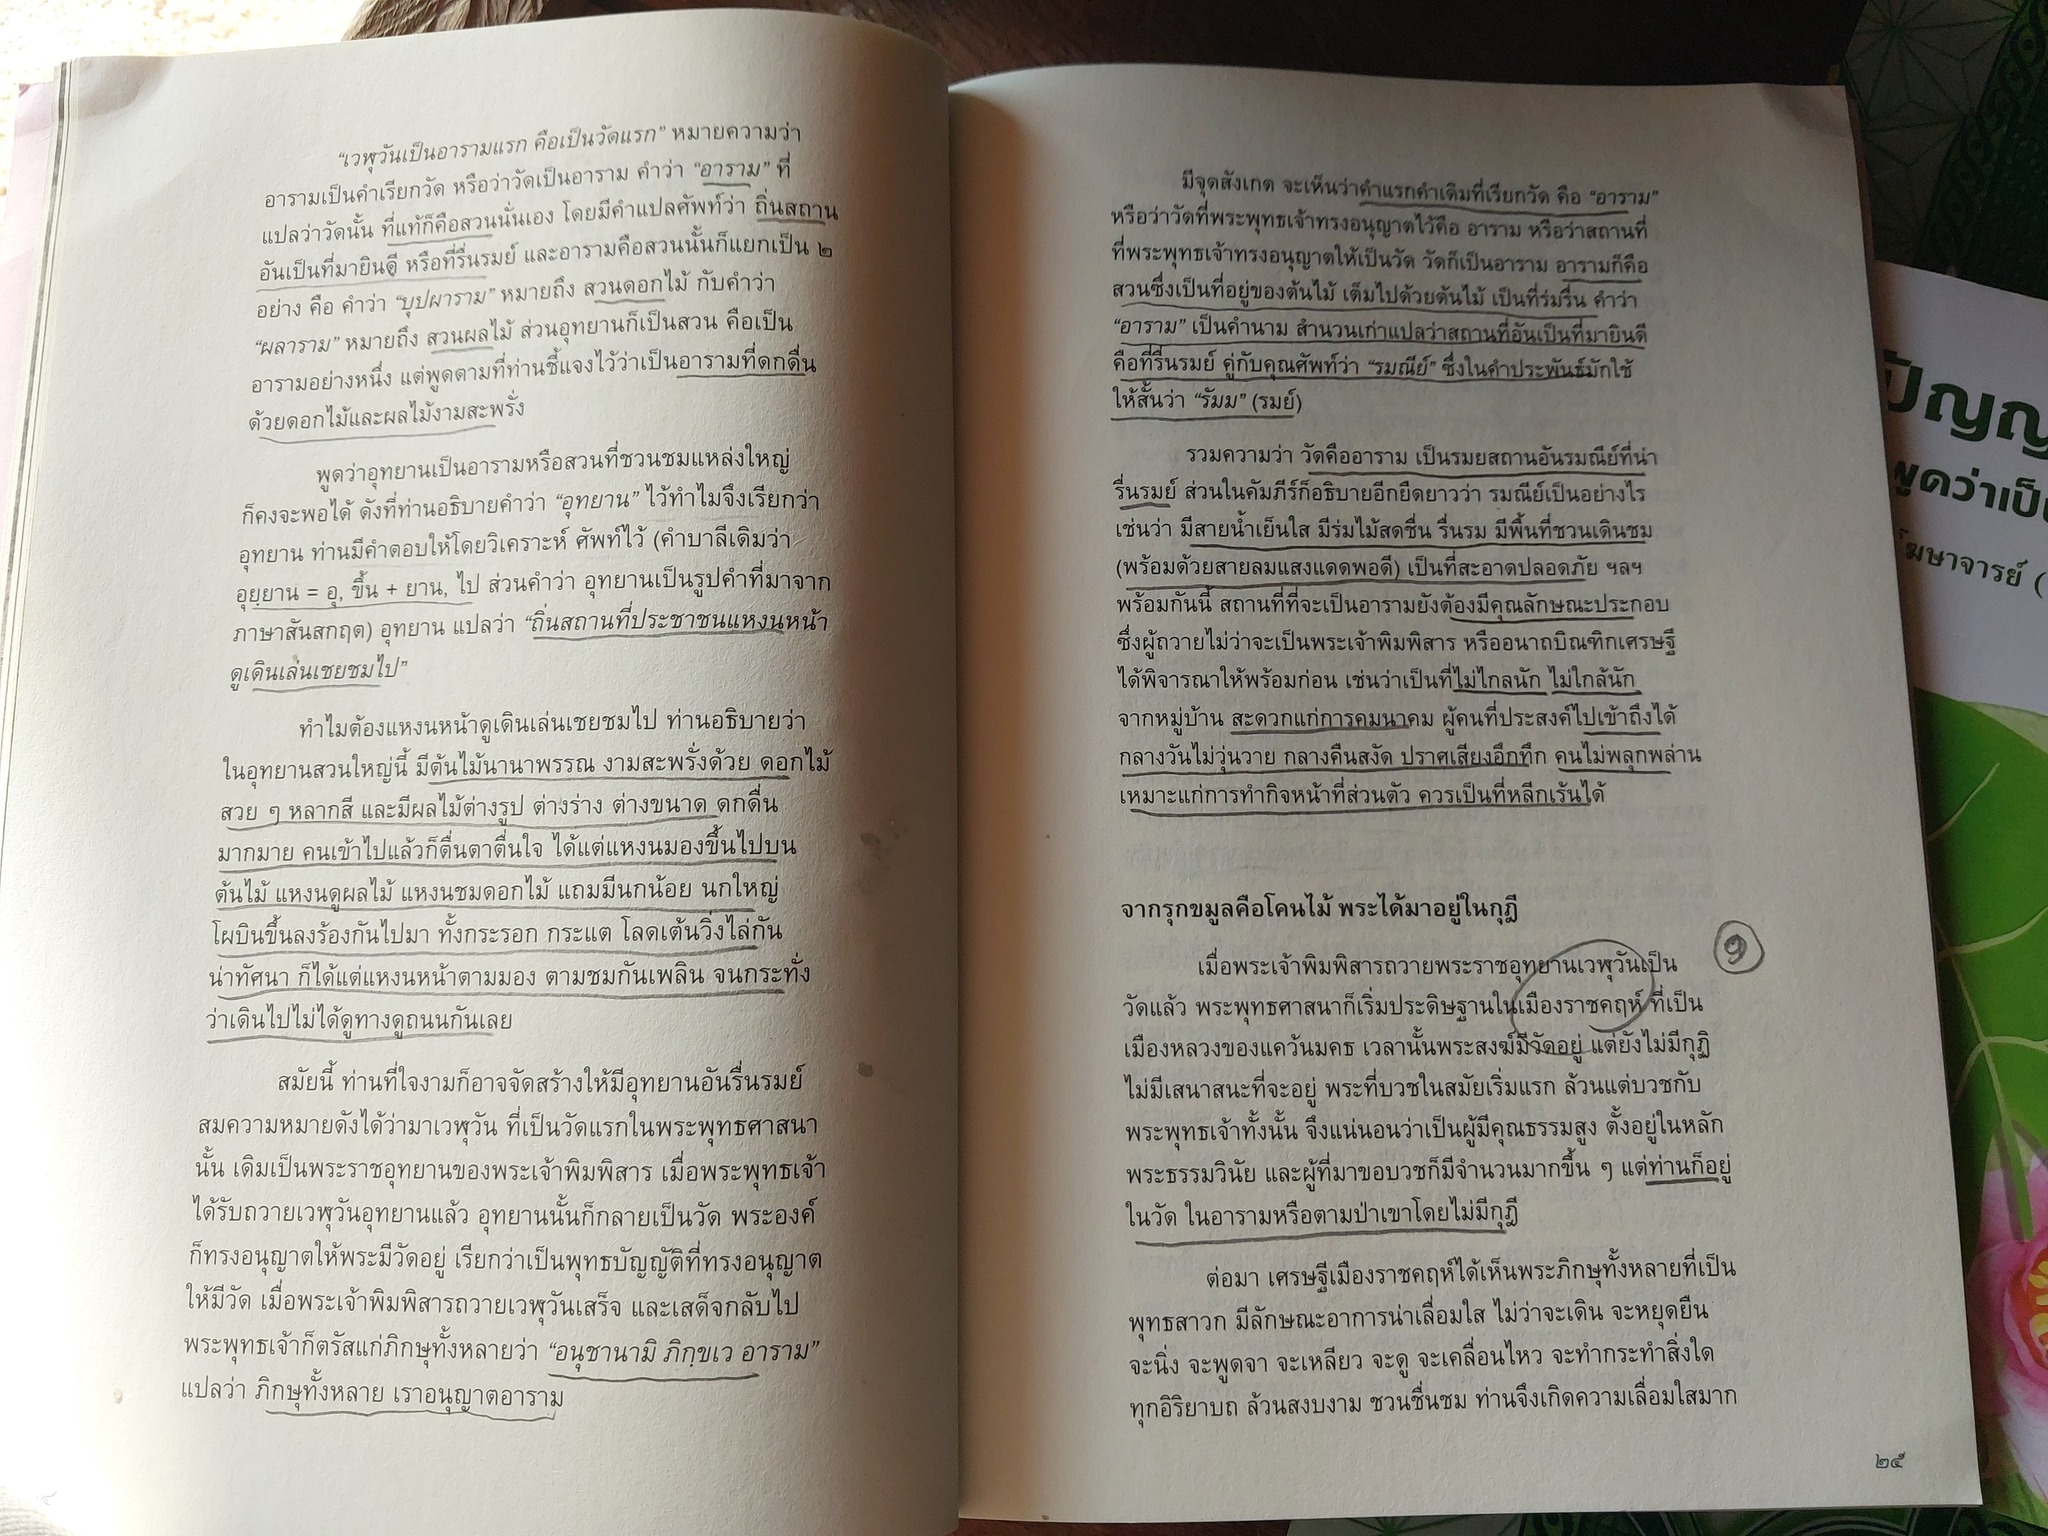 “เวฬุวันเป็นอารามแรก คือเป็นวัดแรก” หมายความว่า
อารามเป็นคำเรียกวัด หรือว่าวัดเป็นอาราม คำว่า “อาราม” ที่
แปลว่าวัดนั้น ที่แท้ก็คือสวนนั่นเอง โดยมีคำแปลศัพท์ว่า ถิ่นสถาน
อันเป็นที่มายินดี หรือที่รื่นรมย์ และอารามคือสวนนั้นก็แยกเป็น ๒
อย่าง คือ คำว่า “บุปผาราม” หมายถึง สวนดอกไม้ กับคำว่า
“ผลาราม” หมายถึง สวนผลไม้ ส่วนอุทยานก็เป็นสวน คือเป็น
อารามอย่างหนึ่ง แต่พูดตามที่ท่านชี้แจงไว้ว่าเป็นอารามที่ดกดื่น
ด้วยดอกไม้และผลไม้งามสะพรั่ง
พูดว่าอุทยานเป็นอารามหรือสวนที่ชวนชมแหล่งใหญ่
ก็คงจะพอได้ ดังที่ท่านอธิบายคำว่า “อุทยาน” ไว้ทำไมจึงเรียกว่า
อุทยาน ท่านมีคำตอบให้โดยวิเคราะห์ ศัพท์ไว้ (คำบาลีเดิมว่า
อุยฺยาน = อุ, ขึ้น + ยาน, ไป ส่วนคำว่า อุทยานเป็นรูปคำที่มาจาก
ภาษาสันสกฤต) อุทยาน แปลว่า “ถิ่นสถานที่ประชาชนแหงนหน้า
ดูเดินเล่นเชยชมไป”
ทำไมต้องแหงนหน้าดูเดินเล่นเชยชมไป ท่านอธิบายว่า
ในอุทยานสวนใหญ่นี้ มีต้นไม้นานาพรรณ งามสะพรั่งด้วย ดอกไม้
สวย ๆ หลากสี และมีผลไม้ต่างรูป ต่างร่าง ต่างขนาด ดกดื่น
มากมาย คนเข้าไปแล้วก็ตื่นตาตื่นใจ ได้แต่แหงนมองขึ้นไปบน
ต้นไม้ แหงนดูผลไม้ แหงนชมดอกไม้ แถมมีนกน้อย นกใหญ่
โผบินขึ้นลงร้องกันไปมา ทั้งกระรอก กระแต โลดเต้นวิ่งไล่กัน
น่าทัศนา ก็ได้แต่แหงนหน้าตามมอง ตามชมกันเพลิน จนกระทั่ง
ว่าเดินไปไม่ได้ดูทางดูถนนกันเลย
สมัยนี้ ท่านที่ใจงามก็อาจจัดสร้างให้มีอุทยานอันรื่นรมย์
สมความหมายดังได้ว่ามาเวฬุวัน ที่เป็นวัดแรกในพระพุทธศาสนา
นั้น เดิมเป็นพระราชอุทยานของพระเจ้าพิมพิสาร เมื่อพระพุทธเจ้า
ได้รับถวายเวฬุวันอุทยานแล้ว อุทยานนั้นก็กลายเป็นวัด พระองค์
ก็ทรงอนุญาตให้พระมีวัดอยู่ เรียกว่าเป็นพุทธบัญญัติที่ทรงอนุญาต
ให้มีวัด เมื่อพระเจ้าพิมพิสารถวายเวฬุวันเสร็จ และเสด็จกลับไป
พระพุทธเจ้าก็ตรัสแก่ภิกษุทั้งหลายว่า “อนุชานามิ ภิกฺขเว อาราม”
แปลว่า ภิกษุทั้งหลาย เราอนุญาตอาราม
มีจุดสังเกต จะเห็นว่าคำแรกคำเดิมที่เรียกวัด คือ “อาราม”
หรือว่าวัดที่พระพุทธเจ้าทรงอนุญาตไว้คือ อาราม หรือว่าสถานที่
ที่พระพุทธเจ้าทรงอนุญาตให้เป็นวัด วัดก็เป็นอาราม อารามก็คือ
สวนซึ่งเป็นที่อยู่ของต้นไม้ เต็มไปด้วยต้นไม้ เป็นที่ร่มรื่น คำว่า
“อาราม” เป็นคำนาม สำนวนเก่าแปลว่าสถานที่อันเป็นที่มายินดี
คือที่รื่นรมย์ คู่กับคุณศัพท์ว่า “รมณีย์” ซึ่งในคำประพันธ์มักใช้
ให้สั้นว่า “รัมม” (รมย์)
รวมความว่า วัดคืออาราม เป็นรมยสถานอันรมณีย์ที่น่า
รื่นรมย์ ส่วนในคัมภีร์ก็อธิบายอีกยืดยาวว่า รมณีย์เป็นอย่างไร
เช่นว่า มีสายน้ำเย็นใส มีร่มไม้สดชื่น รื่นรม มีพื้นที่ชวนเดินชม
(พร้อมด้วยสายลมแสงแดดพอดี) เป็นที่สะอาดปลอดภัย ฯลฯ
พร้อมกันนี้ สถานที่ที่จะเป็นอารามยังต้องมีคุณลักษณะประกอบ
ซึ่งผู้ถวายไม่ว่าจะเป็นพระเจ้าพิมพิสาร หรืออนาถบิณฑิกเศรษฐี
ได้พิจารณาให้พร้อมก่อน เช่นว่าเป็นที่ไม่ไกลนัก ไม่ใกล้นัก
จากหมู่บ้าน สะดวกแก่การคมนาคม ผู้คนที่ประสงค์ไปเข้าถึงได้
กลางวันไม่วุ่นวาย กลางคืนสงัด ปราศเสียงอึกทึก คนไม่พลุกพล่าน
เหมาะแก่การทำกิจหน้าที่ส่วนตัว ควรเป็นที่หลีกเร้นได้
จากรุกขมูลคือโคนไม้ พระได้มาอยู่ในกุฎี
๑
เมื่อพระเจ้าพิมพิสารถวายพระราชอุทยานเวฬุวันเป็น
วัดแล้ว พระพุทธศาสนาก็เริ่มประดิษฐานในเมืองราชคฤห์ ที่เป็น
เมืองหลวงของแคว้นมคธ เวลานั้นพระสงฆ์มีวัดอยู่ แต่ยังไม่มีกุฏิ
ไม่มีเสนาสนะที่จะอยู่ พระที่บวชในสมัยเริ่มแรก ล้วนแต่บวชกับ
พระพุทธเจ้าทั้งนั้น จึงแน่นอนว่าเป็นผู้มีคุณธรรมสูง ตั้งอยู่ในหลัก
พระธรรมวินัย และผู้ที่มาขอบวชก็มีจำนวนมากขึ้น ๆ แต่ท่านก็อยู่
ในวัด ในอารามหรือตามป่าเขาโดยไม่มีกุฎี
ต่อมา เศรษฐีเมืองราชคฤห์ได้เห็นพระภิกษุทั้งหลายที่เป็น
พุทธสาวก มีลักษณะอาการน่าเลื่อมใส ไม่ว่าจะเดิน จะหยุดยืน
จะนิ่ง จะพูดจา จะเหลียว จะดู จะเคลื่อนไหว จะทำกระทำสิ่งใด
ทุกอิริยาบถ ล้วนสงบงาม ชวนชื่นชม ท่านจึงเกิดความเลื่อมใสมาก
๒๕
ปัญญ
พูดว่าเป็น
โฆษาจารย์ (